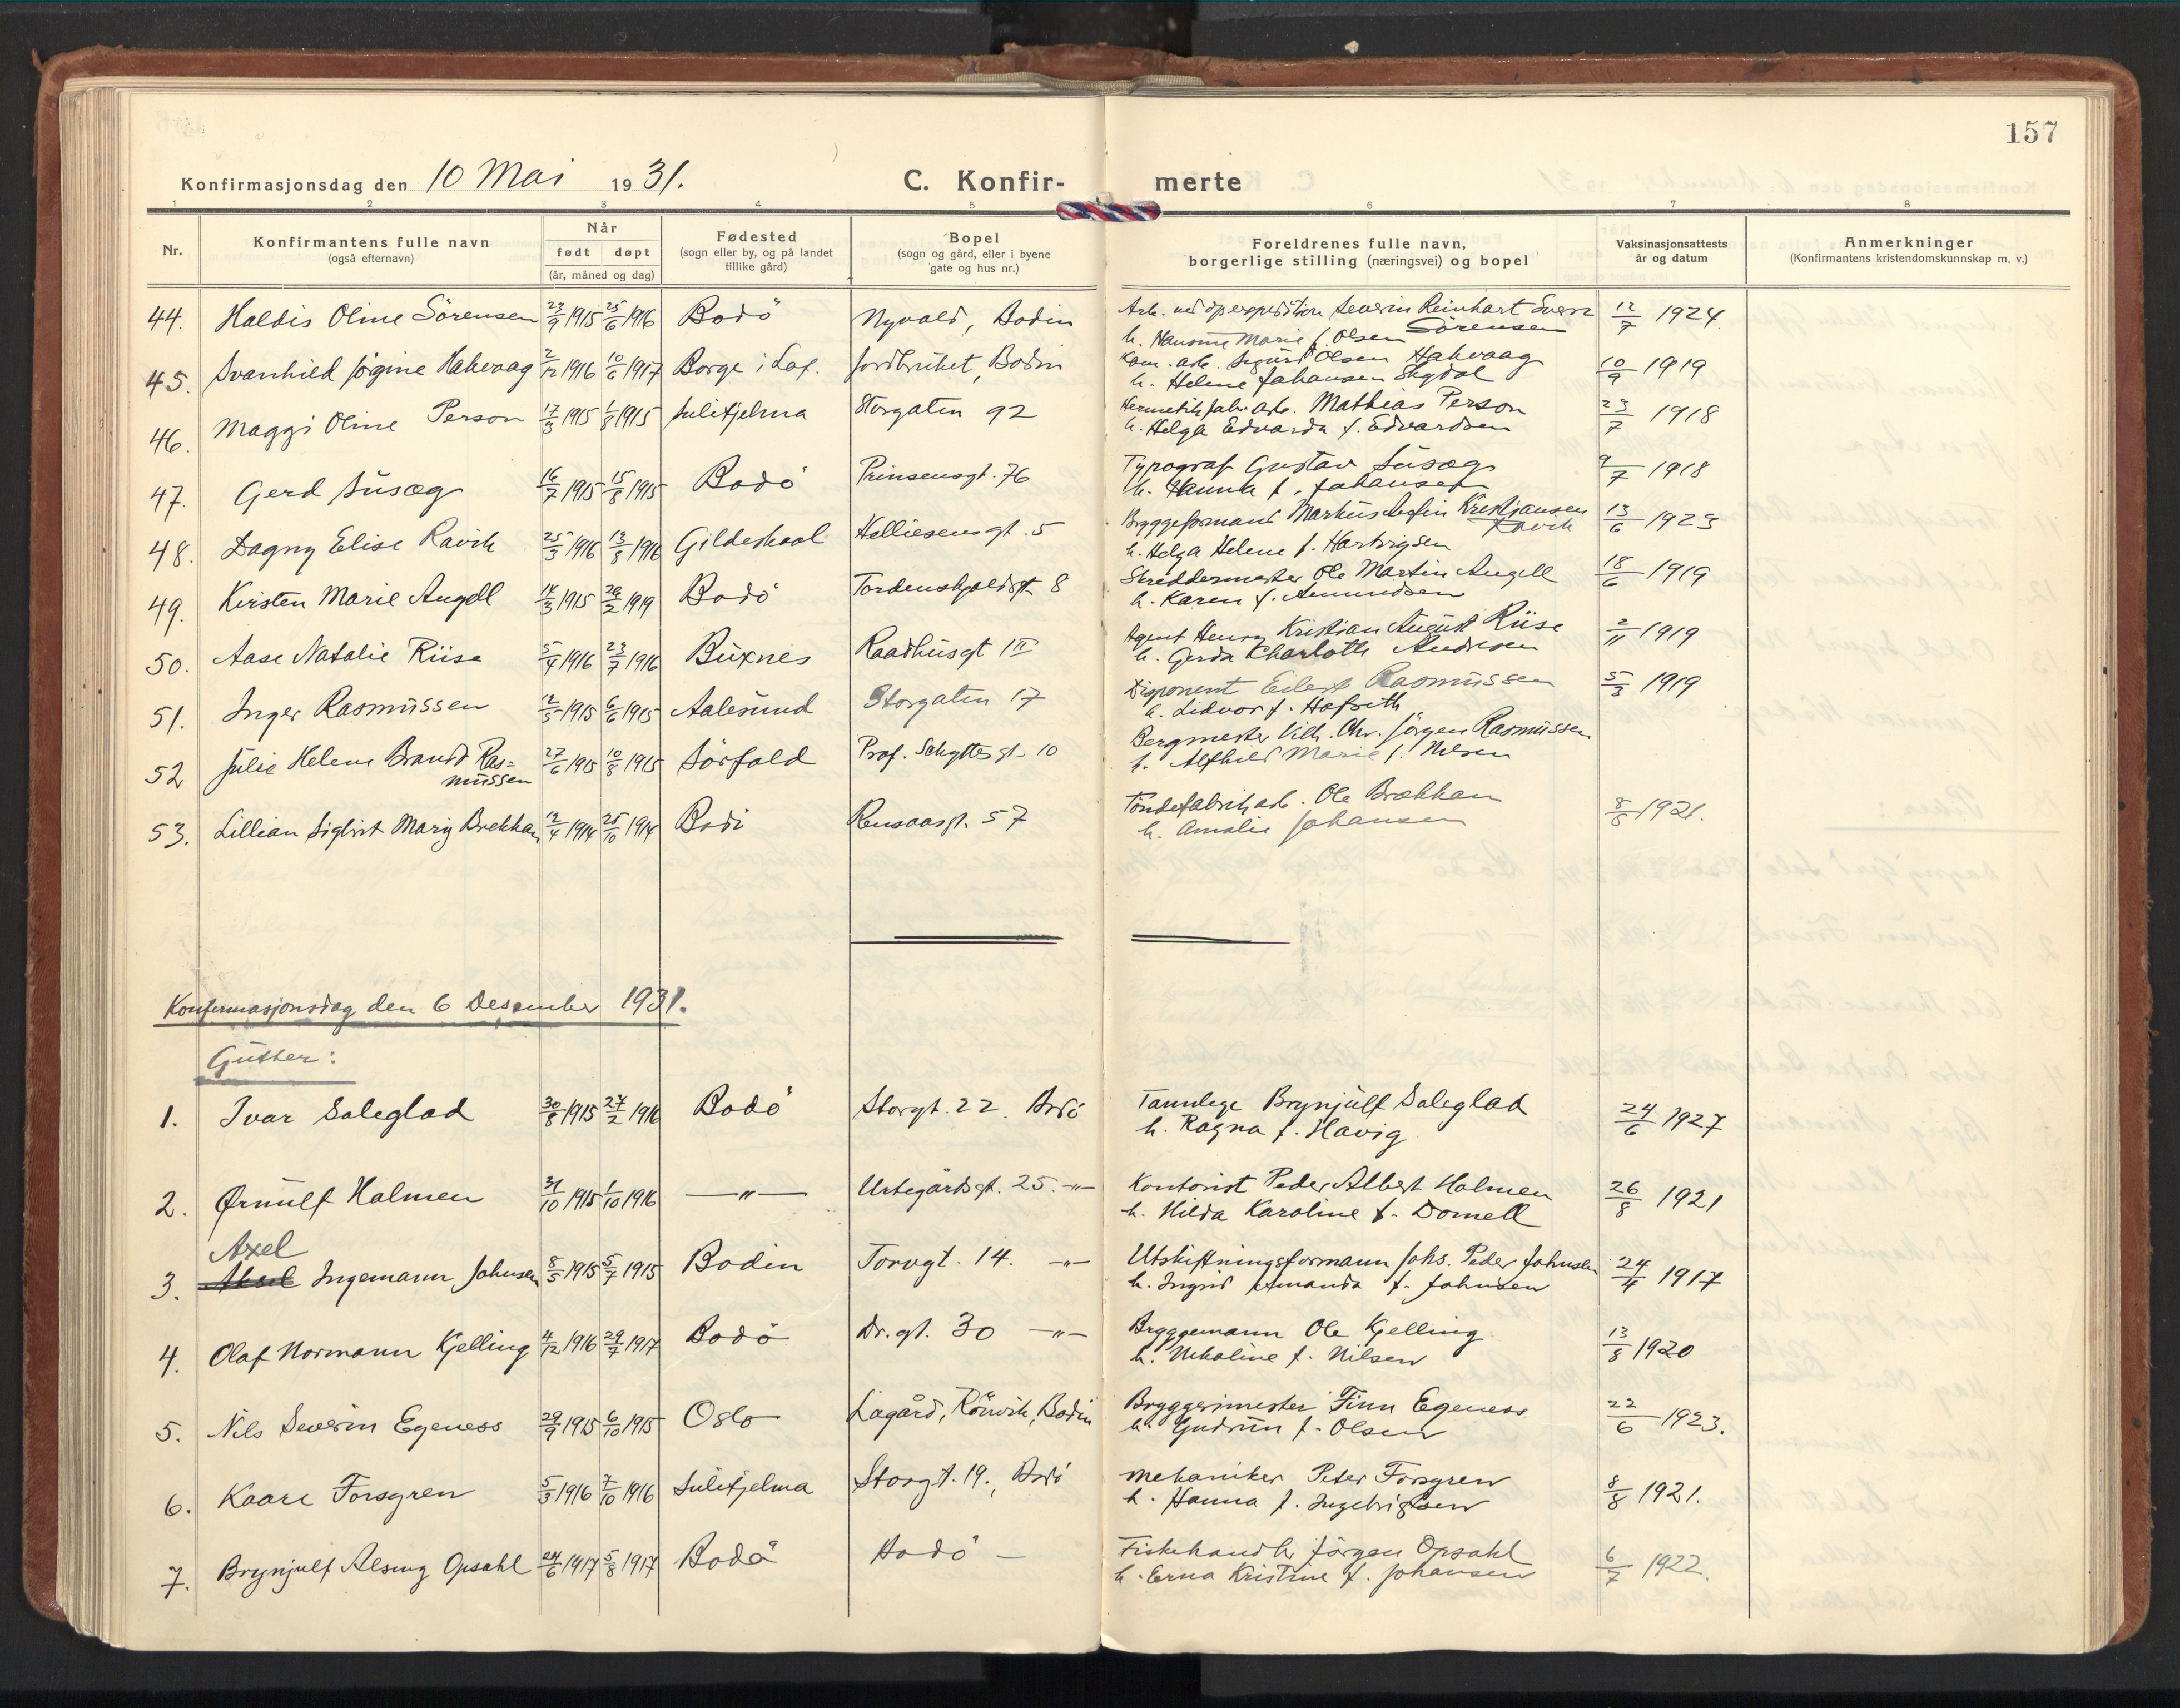 157
Konfirmasjonsdag den 10 Mai 1931.
C. Konfir- merte
1 2 3 4 5 6 7 8
Nr.
Konfirmantens fulle navn
(også efternavn)
Når
født døpt
(år, måned og dag)
Fødested
(sogn eller by, og på landet
tillike gård)
Bopel
(sogn og gård, eller i byene
gate og hus nr.)
Foreldrenes fulle navn,
borgerlige stilling (næringsvei) og bopel
Vaksinasjonsattests
år og datum
Anmerkninger
(Konfirmantens kristendomskunnskap m. v.)
44. Haldis Oline Sörensen 23/9 1915 25/6 1916 Bodö Nyvold, Bodin Arb. ved Severin Reinhart
h. Marie f. Olsen Sörensen 12/7 1924.
45. Svanhild Jögine Hakvaag 2/12 1916 10/6 1917 Borge i Lof. Jordbruket, Bodin Kom. arb. Sigurd Olsen Hakvaag
h. Helene Johansen 10/9 1919
46. Maggi Oline Person 17/3 1915 1/8 1915 Sulitjelma Storgaten 92 Hermetikfabr. arb. Mathias Person
h. Helga Edvarda f. Edvardsen 23/7 1918
47. Gerd Susæg 16/7 1915 15/8 1915 Bodö Prinsensgt. 76 Typograf Gustav Susæg
h. Hanna f. Johansen 9/7 1918
48. Dagny Elise Ravik 25/3 1916 13/8 1916 Gildeskaal Helliesensgt. 5 Bryggeformand Markus Kristjansen
Ravik
h. Helga Helene f. Hartvigsen 13/6 1923
49. Kirsten Marie Angell 14/3 1915 26/2 1919 Bodö Tordenskjoldsgt. 8 Skreddermester Ole Martin Angell
h. Karen f. Amundsen 18/6 1919
50. Aase Natalie Riise 5/4 1916 23/7 1916 Buxnes Raadhusgt III Agent Henry Kristian August Riise
h. Gerda Charlotte Andresen 2/11 1919
51. Inger Rasmussen 12/3 1915 6/6 1915 Aalesund Storgaten 17 Disponent Eilert Rasmussen
h. Lidvor f. Hofseth 5/3 1919
52 Julie Helene Brandt Ras=
mussen 27/6 1915 10/8 1915 Sörfold Prof. Schyttesgt. 10 Bergmester Vilh. Chr. Jörgen Rasmussen
h. Alfhild Marie f. Nilsen
53. Lillian Sigbrit Mary Brekkan 12/4 1914 25/10 1914 Bodö Rensaasgt. 57 Töndefabrikarb. Ole Brækkan
h. Amalie Johansen 8/8 1921.
Konfirmasjonsdag den 6 Desember 1931.
Gutter:
1. Ivar Soleglad 30/8 1915 27/2 1916 Bodö Storgt. 22. Bodö Tannlege Brynjulf Soleglad
h. Ragna f. Havig 24/6 1927
2. Ørnulf Holmen 31/10 1915 1/10 1916 —"— Urtegårdsgt. 25. —"— Kontorist Peder Albert Holmen
h. Hilda Karoline f. Dornell 26/8 1921
Axel
3. Aksel Ingemann Johnsen 8/5 1915 5/7 1915 Bodin Torvgt. 14. —"— Utskiftningsformann Johs. Peder Johnsen
h. Ingrid Amanda f. Johnsen 24/4 1917
4. Olaf Normann Kjelling 4/12 1916 29/7 1917 Bodö Dr.gt. 30 —"— Bryggemann Ole Kjelling
h. Nikoline f. Nilsen 13/8 1920
5. Nils Severin Egeness 29/9 1915 6/10 1915 Oslo Lagård, Rönvik, Bodin Bryggerimester Finn Egeness
h. Gudrun f. Olsen 22/6 1923.
6. Kaare Forsgren 5/3 1916 7/10 1916 Sulitjelma Storgt. 19., Bodö Mekaniker Peter Forsgren
h. Hanna f. Ingebrigtsen 8/8 1921.
7. Brynjulf Alsing Opsahl 24/6 1917 5/8 1917 Bodö Bodö — Fiskehandler Jörgen Opsahl
h. Erna Kristine f. Johansen 6/7 1922.